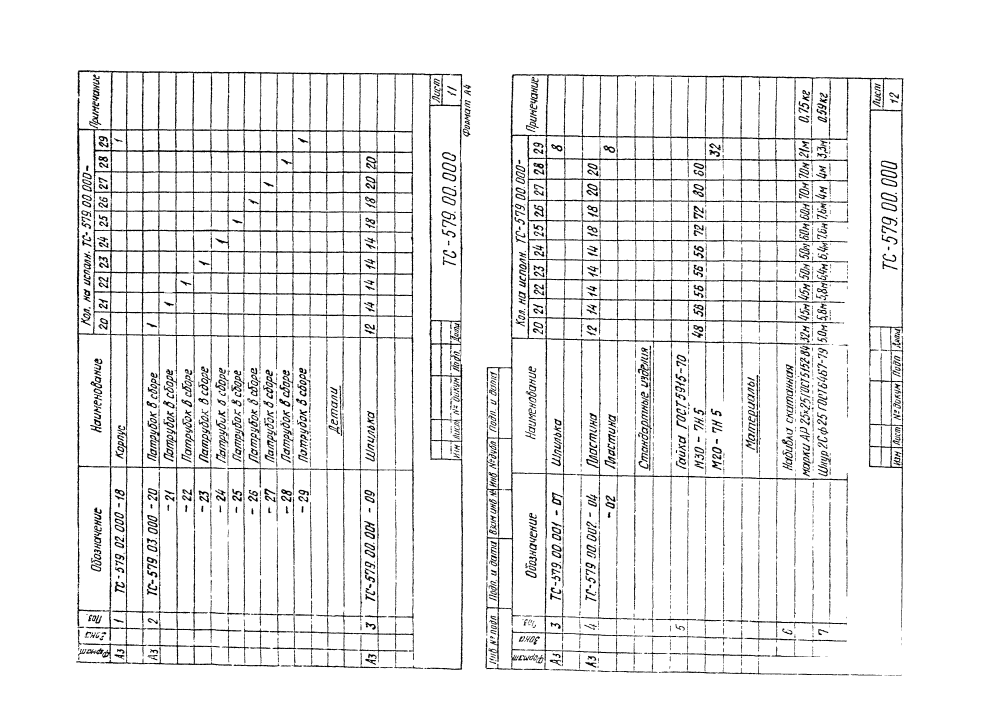 Формат Зона Поз. Обозначение Наименование Кол. на исполн. ТС-579.00.000- Примечание
20 21 22 23 24 25 26 27 28 29
А3 1 ТС-579.02.000-18 Корпус 1
А3 2 ТС-579.03.000-20 Патрубок в сборе 1
-21 Патрубок в сборе 1
-22 Патрубок в сборе 1
-23 Патрубок в сборе 1
-24 Патрубок в сборе 1
-25 Патрубок в сборе 1
-26 Патрубок в сборе 1
-27 Патрубок в сборе 1
-28 Патрубок в сборе 1
-29 Патрубок в сборе 1
Детали
А3 3 ТС-579.00.001-09 Шпилька 12 14 14 14 14 18 18 20 20
Изм Лист № докум Подп. Дата
ТС-579.00.000
Лист
11
Формат А4
Инв № подл Подп. и дата Взам инв № Инв № дубл Подп. и дата
Формат Зона Поз. Обозначение Наименование Кол. на исполн. ТС-579.00.000- Примечание
20 21 22 23 24 25 26 27 28 29
А3 3 ТС-579.00.001-07 Шпилька 8
А3 4 ТС-579.00.002-04 Пластина 12 14 14 14 14 18 18 20 20
-02 Пластина 8
Стандартные изделия
5 Гайка ГОСТ 5915-70
М30-7Н5 48 56 56 56 56 72 72 80 80
М20-7Н5 32
Материалы
6 Набивка скатанная
марки АП 25×25 ГОСТ 5152-84 32м 45м 45м 50м 50м 60м 60м 70м 70м 21м 0,75кг
7 Шнур 2Сф25 ГОСТ 6467-79 5.0м 5,8м 5,8м 6,4м 6,4м 7.6м 7,6м 4м 4м 3,3м 0.59кг
Изм Лист № докум Подп Дата
ТС-579.00.000
Лист
12